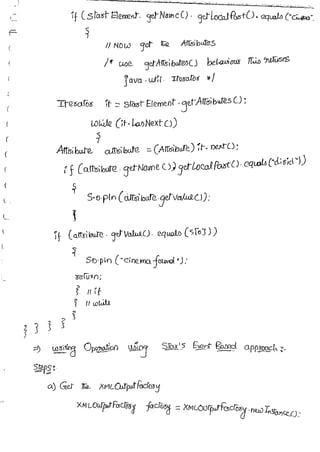 if (start Element. getName(). getLocalPart(). equals ("Cinema".
{
// NOW get the Attributes
/* use getAttributes() behaviour This returns
java.util. Iterator */
Iterator it = Start Element.getAttributes();
while (it.hasNext())
{
Attribute attribute = (Attribute) it.next();
if (attribute.getName().getLocalPart().equals("cid"))
{
S.o.pln (attribute.getValue());
}
if (attribute.getValue().equals(sto))
{
So.pln ("cinema found");
return;
} // if
} // while
} } } }
=) writing Operation using Stax's Event Based approach :-
Steps:
a) Get the XMLOutputfactory
XMLOutputFactory factory = XMLOutputFactory.newInstance();